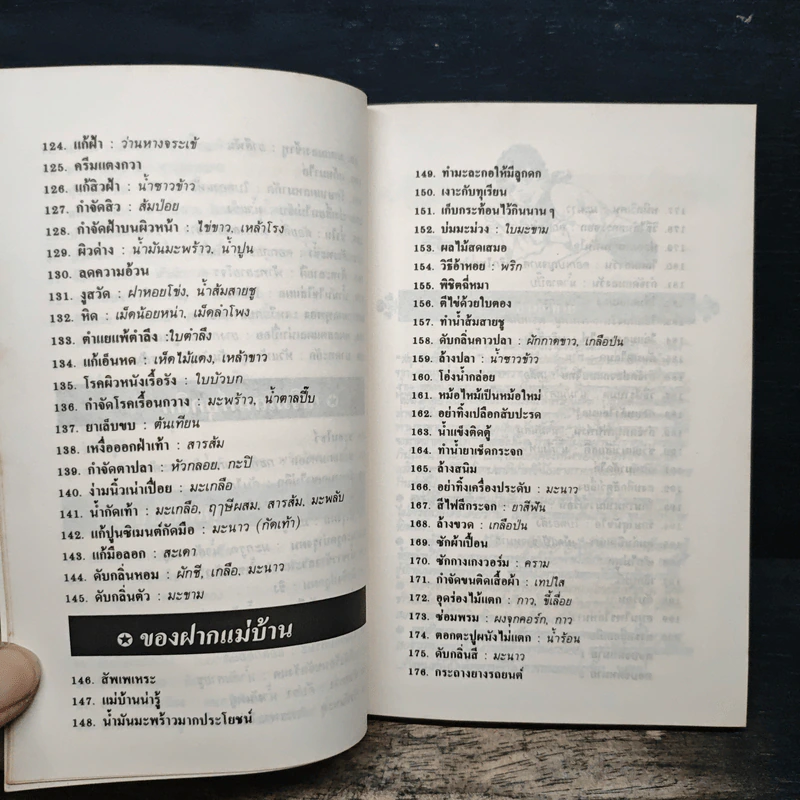 124. แก้ฝ้า : ว่านหางจระเข้
125. ครีมแตงกวา
126. แก้สิวฝ้า : น้ำซาวข้าว
127. กำจัดสิว : ส้มป่อย
128. กำจัดฝ้าบนผิวหน้า : ไข่ขาว, เหล้าโรง
129. ผิวด่าง : น้ำมันมะพร้าว, น้ำปูน
130. ลดความอ้วน
131. งูสวัด : ฝาหอยโข่ง, น้ำส้มสายชู
132. หิด : เม็ดน้อยหน่า, เม็ดลำโพง
133. ตำแยแพ้ตำลึง : ใบตำลึง
134. แก้เอ็นหด : เห็ดไม้แดง, เหล้าขาว
135. โรคผิวหนังเรื้อรัง : ใบบัวบก
136. กำจัดโรคเรื้อนกวาง : มะพร้าว, น้ำตาลปี๊บ
137. ยาเล็บขบ : ต้นเทียน
138. เหงื่อออกฝ่าเท้า : สารส้ม
139. กำจัดตาปลา : หัวกลอย, กะปิ
140. ง่ามนิ้วเน่าเปื่อย : มะเกลือ
141. น้ำกัดเท้า : มะเกลือ, ฤๅษีผสม, สารส้ม, มะพลับ
142. แก้ปูนซิเมนต์กัดมือ : มะนาว (กัดเท้า)
143. แก้มือลอก : สะเดา
144. ดับกลิ่นหอม : ผักชี, เกลือ, มะนาว
145. ดับกลิ่นตัว : มะขาม
ของฝากแม่บ้าน
146. สัพเพเหระ
147. แม่บ้านน่ารู้
148. น้ำมันมะพร้าวมากประโยชน์
149. ทำมะละกอให้มีลูกดก
150. เงาะกับทุเรียน
151. เก็บกระท้อนไว้กินนาน ๆ
152. บ่มมะม่วง : ใบมะขาม
153. ผลไม้สดเสมอ
154. วิธีอ้าหอย : พริก
155. พิชิตฉี่หมา
156. ตีไข่ด้วยใบตอง
157. ทำน้ำส้มสายชู
158. ดับกลิ่นคาวปลา : ผักกาดขาว, เกลือป่น
159. ล้างปลา : น้ำซาวข้าว
160. โอ่งน้ำกล่อย
161. หม้อใหม้เป็นหม้อใหม่
162. อย่าทิ้งเปลือกสับปะรด
163. น้ำแข็งติดตู้
164. ทำน้ำยาเช็ดกระจก
165. ล้างสนิม
166. อย่าทิ้งเครื่องประดับ : มะนาว
167. สีไฟสีกระจก : ยาสีฟัน
168. ล้างขวด : เกลือป่น
169. ซักผ้าเปื้อน
170. ซักกางเกงวอร์ม : คราม
171. กำจัดขนติดเสื้อผ้า : เทปใส
172. อุดร่องไม้แตก : กาว, ขี้เลื่อย
173. ซ่อมพรม : ผงจุกคอร์ก, กาว
174. ตอกตะปูผนังไม่แตก : น้ำร้อน
175. ดับกลิ่นสี : มะนาว
176. กระถางยางรถยนต์